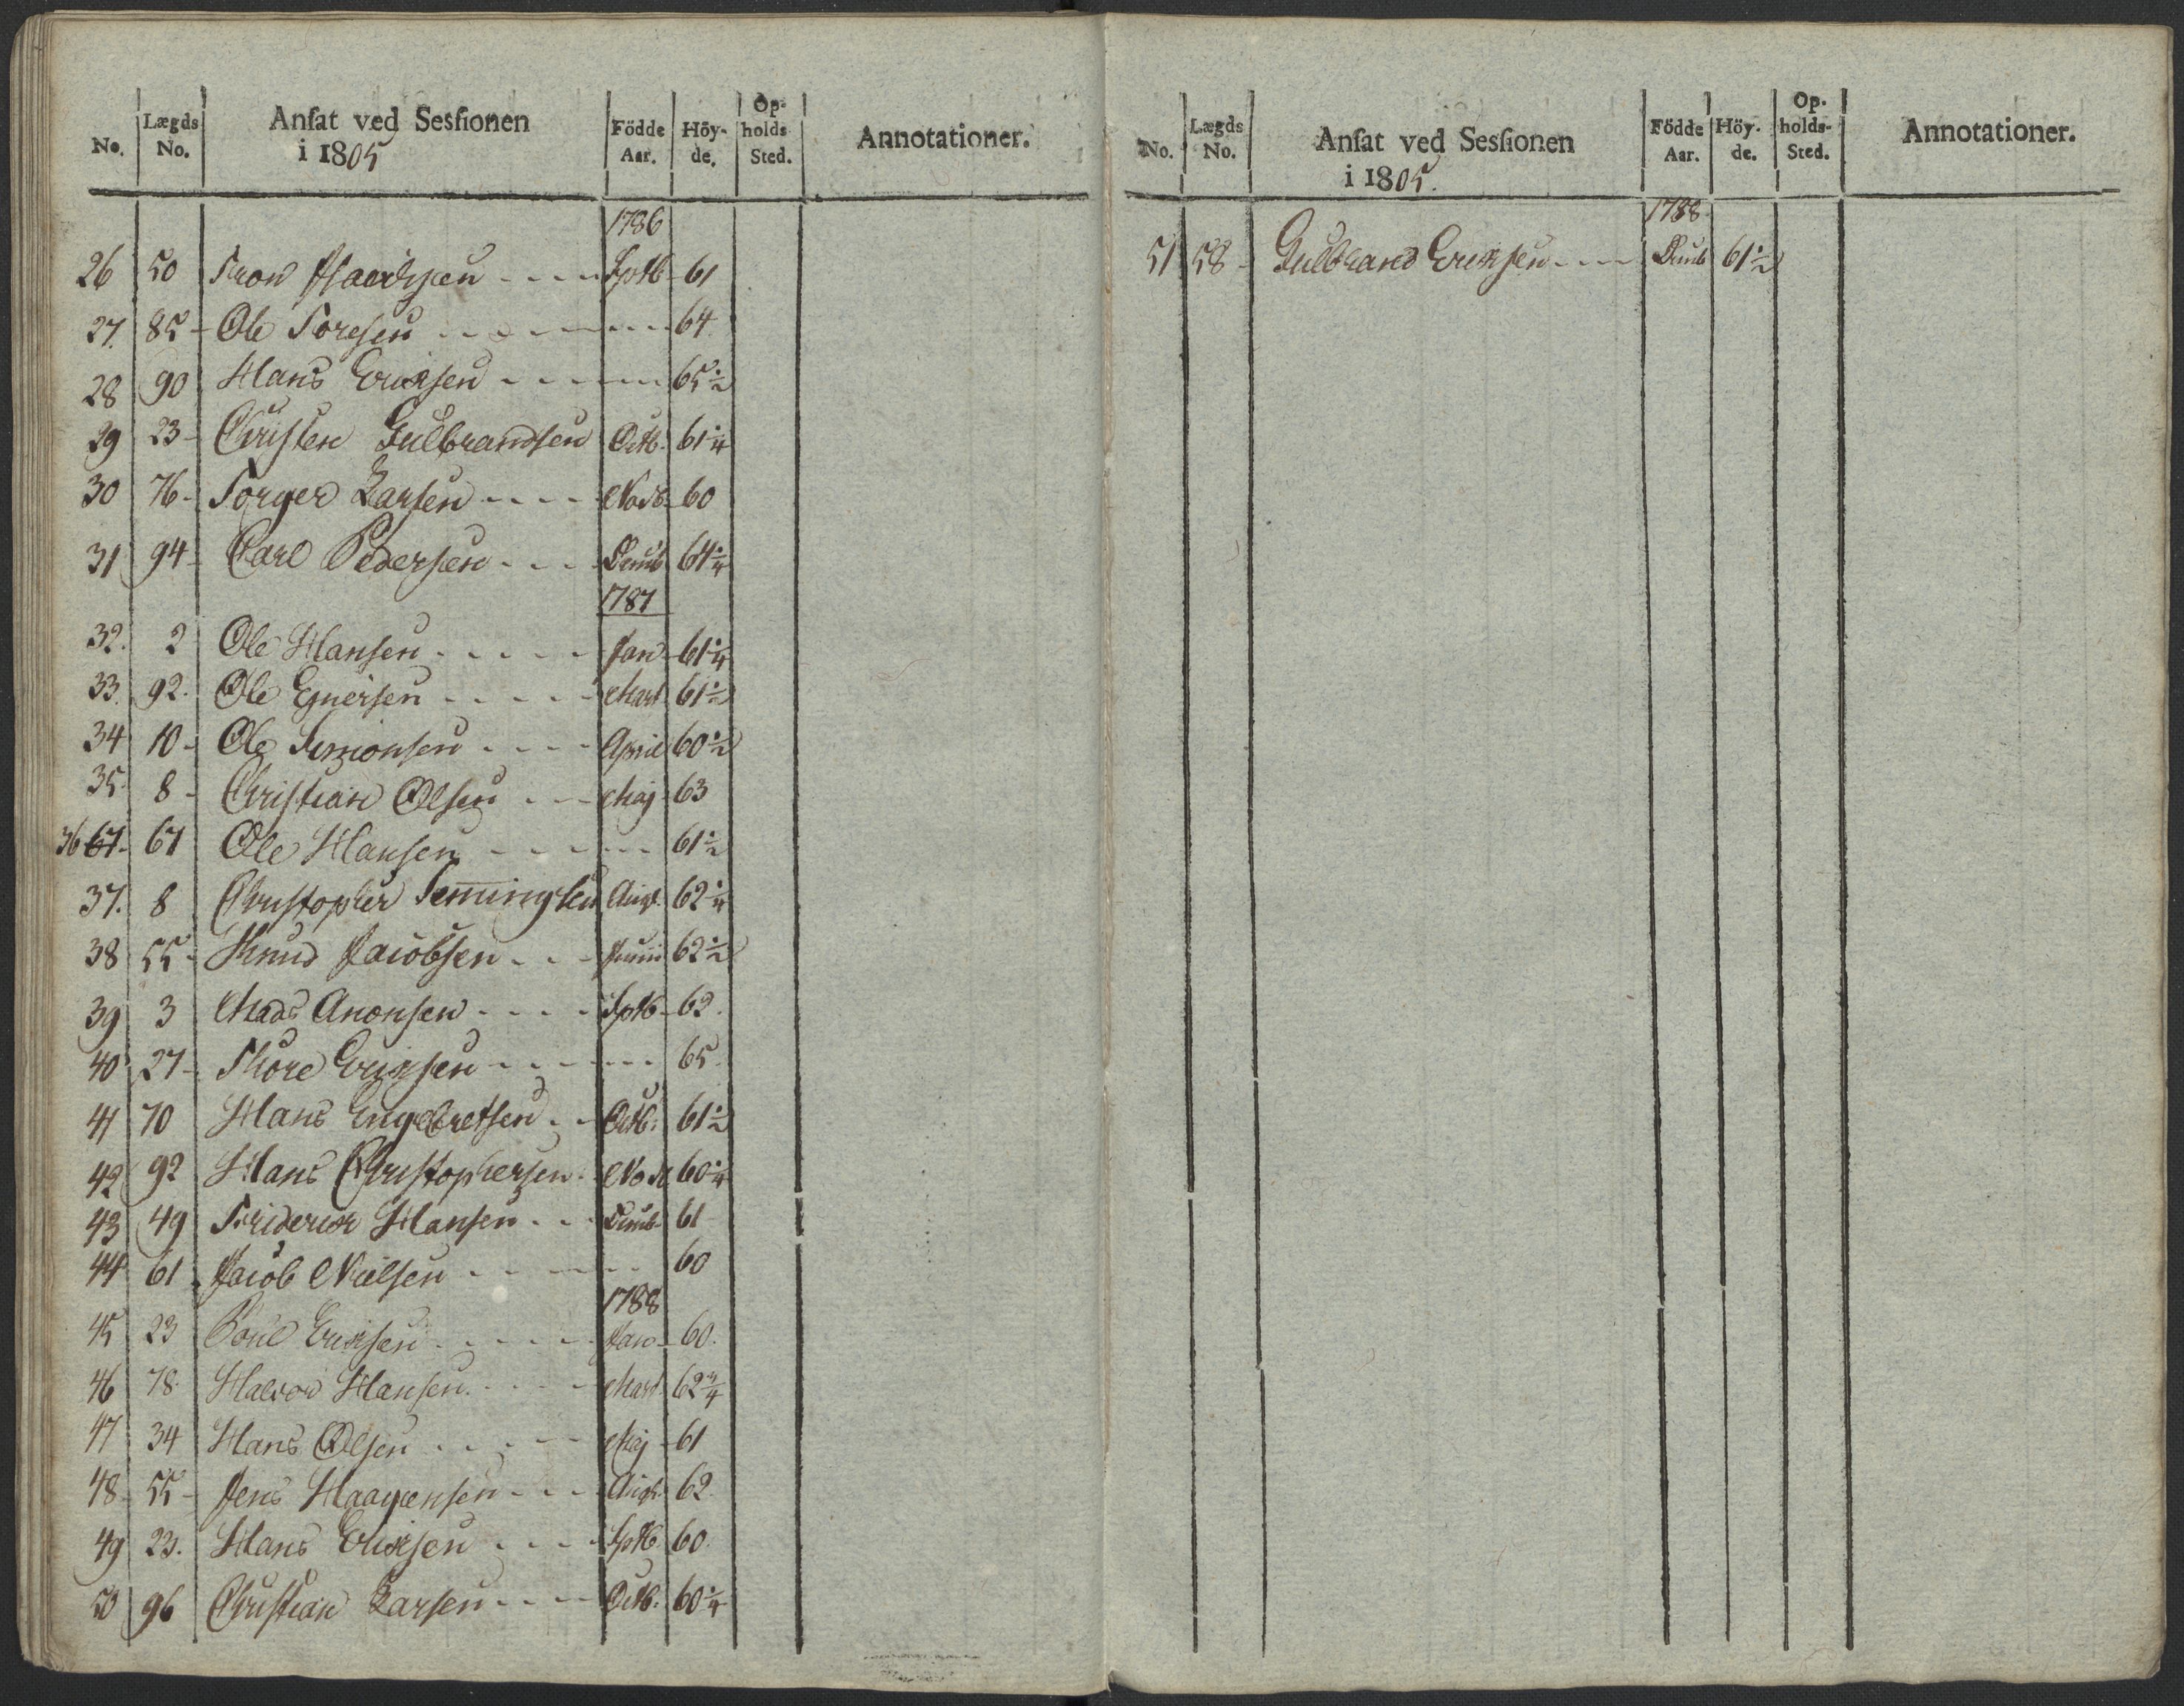 No. Lægds No. Ansat ved Sessionen i 1805 Födde Aar. Höyde. Opholds Sted. Annotationer.
1786
26 50 Tron Haavelsen - - - Sptb 61
27. 85 - Ole Toresen - - - - - - 64
28 90 Hans Ericksen - - - - - 65 1/2
29 23 - Christen Gulbrandsen Octb. 61 1/4
30 76 - Torger Larsen - - - - Novb 60
31 94 - Carl Pedersen - - - Decmb 64 1/4
1787
32. 2 Ole Hansen - - - - - Jan 61 1/4
33. 92. Ole Egnersen - - - - - Mart 61 1/2
34 10 - Ole Simonsen - - - - April 60 1/2
35. 8 - Christian Olsen - - - Maj 63
36 67 - 67 Ole Hansen - - - - - 61 1/2
37. 8 Christopher Semingsen Augt. 62 1/4
38 55 - Knud Jacobsen - - - Junii 62 1/2
39 3 Mads Anonsen - - - - Sptb 62.
40 27 - Thore Ericksen - - - - - 65.
41 70 Hans Engebretsen - - Octb. 61 1/2
42 92 Hans Christophersen - Novb 60 1/4
43 49 Friderick Hansen - - - Decmb 61
44 61 Jacob Nielsen - - - - - 60
1788
45 23 Poul Ericksen - - - - - Jan 60.
46 78. Halvor Hansen. - - - - Mart. 62 3/4
47 34 Hans Olsen - - - - - Maj 61
48 55 - Jens Haagensen - - - Augt. 62.
49 23. Hans Ericksen - - - - Sptb 60.
50 96 Christian Larsen - - - - Octb. 60 1/4
No. Lægds No. Ansat ved Sessionen i 1805. Födde Aar. Höyde. Opholds-Sted. Annotationer.
1788
51 58 - Gulbrand Ericksen - - - Decmb 61 1/2